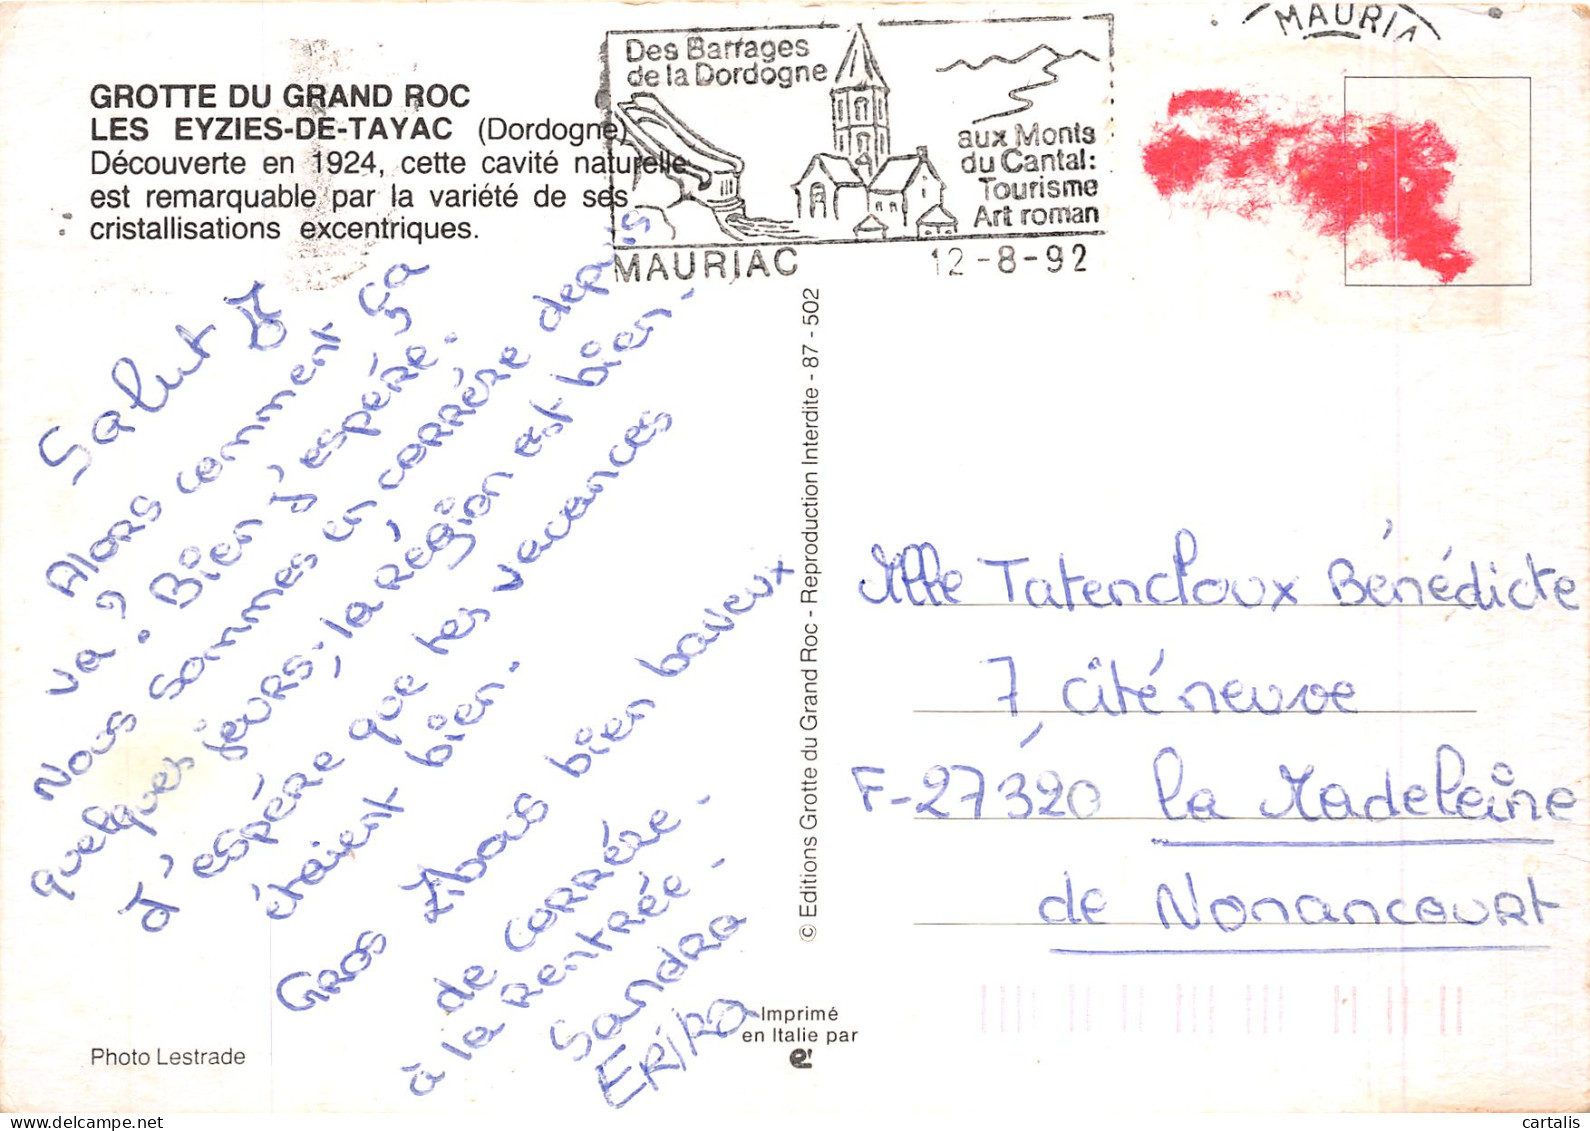 GROTTE DU GRAND ROC
LES EYZIES-DE-TAYAC (Dordogne)
Découverte en 1924, cette cavité naturelle
est remarquable par la variété de ses
cristallisations excentriques.
Des Barrages
de la Dordogne
aux Monts
du Cantal:
Tourisme
Art roman
MAURIAC 12-8-92
MAURIA
Salut
Alors comment ça
va? Bien j'espére.
Nous sommes en corrére depuis
quelques jours, la région est bien.
J'espére que tes vacances
étaient bien.
Gros bien baveux
de corrére.
à la rentrée.
Sandra
Erika
© Editions Grotte du Grand Roc - Reproduction Interdite - 87 - 502
Mlle Tatencloux Bénédicte
7 cité neuve
F-27320 La Madeleine
de Nonancourt
Photo Lestrade
Imprimé
en Italie par
e!
cartalis